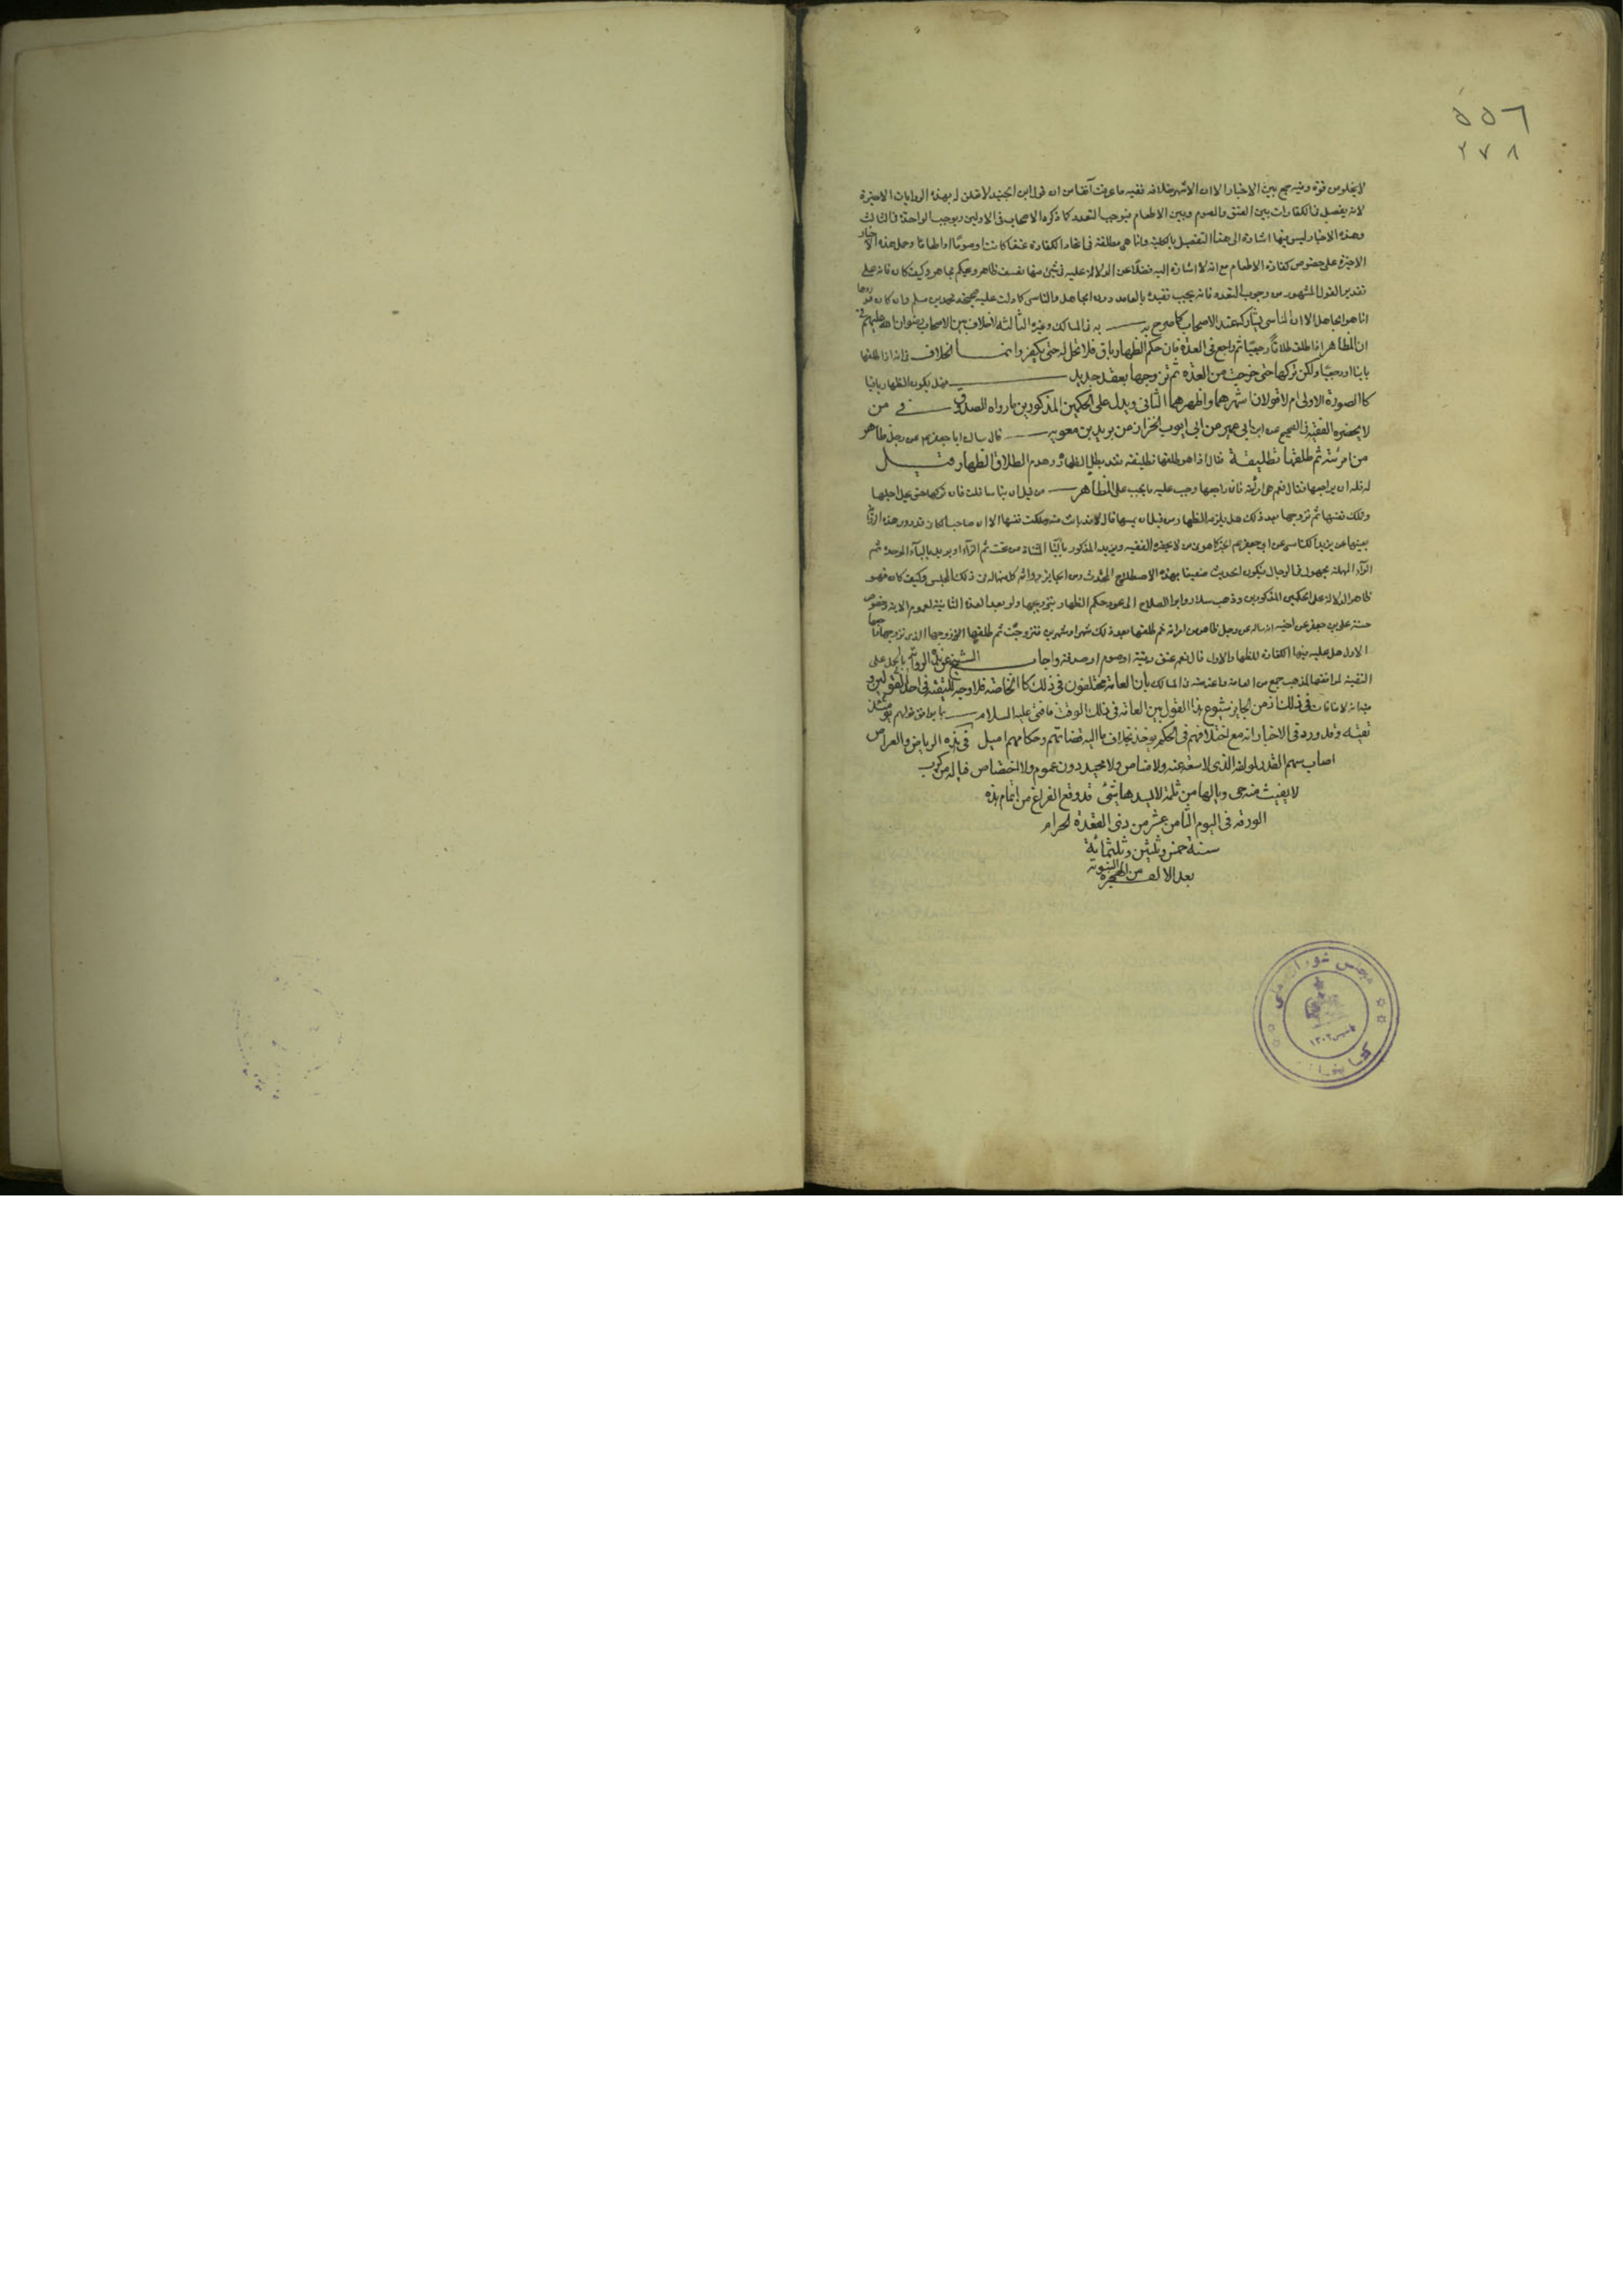 ٥٥٦
٢٧٨
لا يخلو من قوة وفيه جمع بين الاخبار الا ان الاشهر خلافه ففيه ما عرفت آنفا من ان قول ابن الجنيد لا تعلق له بهذه الروايات الاخيرة
لانه يفصل في الكفارات بين العتق والصوم وبين الاطعام فيوجب التعدد كما ذكره الاصحاب في الاولين ويوجب الواحدة في الثالث
وهذه الاخبار ليس فيها اشارة الى هذا التفصيل بالكلية وانما هي مطلقة في اتحاد الكفارة عتقا كانت او صوما او اطعاما وحمل هذه الاخبار
الاخيرة على خصوص كفارة الاطعام مع انه لا اشارة اليه فضلا عن الدلالة عليه في شئ منها تعسف ظاهر وكيف كان فانه على
تقدير القول المشهور من وجوب التعدد فانه يجب تقييده بالعامد دون الجاهل والناسي كما دلت عليه صحيحة محمد بن مسلم وان كان موردها
انما هو الجاهل الا ان الناسي يشاركه عند الاصحاب كما صرح به في المسالك وغيره الثالثة لا خلاف بين الاصحاب رضوان الله عليهم في
ان المظاهر اذا طلق طلاقا رجعيا ثم راجع في العدة فان حكم الظهار باق فلا تحل له حتى يكفر وانما الخلاف في انه اذا طلقها
باينا او رجعيا ولكن تركها حتى خرجت من العدة ثم تزوجها بعقد جديد فهل يكون الظهار باقيا
كالصورة الاولى ام لا قولان اشهرهما واظهرهما الثاني ويدل على الحكمين المذكورين ما رواه الصدوق في من
لا يحضره الفقيه في الصحيح عن ابن ابي عمير عن ابي ايوب الخزاز عن بريد بن معويه قال سالت ابا جعفر عم عن رجل ظاهر
من امرئته ثم طلقها تطليقة فقال اذا هو طلقها تطليقة فقد بطل الظهار وهدم الطلاق الظهار قيل
له فله ان يراجعها فقال نعم هي امرئته فان راجعها وجب عليه ما يجب على المظاهر من قبل ان يتماسا قلت فان تركها حتى يحل اجلها
وتملك نفسها ثم تزوجها بعد ذلك هل يلزمه الظهار من قبل ان يمسها قال لا قد بانت منه وملكت نفسها الا ان صاحب الكافي قد روى هذه الرواية
بعينها عن يزيد الكناسي عن ابي جعفر عم
الرآء المهملة مجهول في الرجال فيكون الحديث ضعيفا بهذا الاصطلاح المحدث ومن الجايز روايته كل منهما له في ذلك المجلس وكيف كان فهو
ظاهر الدلالة على الحكمين المذكورين وذهب سلار وابو الصلاح الى عود حكم الظهار بتزويجها ولو بعد العدة الثانية لعموم الاية وخصوص
حسنة علي بن جعفر عن اخيه انه ساله عن رجل ظاهر من امراته ثم طلقها بعد ذلك شهر او شهرين فتزوجت ثم طلقها الذي تزوجها فراجعها
الاول هل عليه فيها الكفارة للظهار الاول قال نعم عتق رقبة او صوم او صدقة واجاب الشيخ عن هذه الرواية بالحمل على
التقية لموافقتها لمذهب جمع من العامة واعترضه في المسالك بأن العامة مختلفون في ذلك كالخاصة فلا وجه للتقية في احد القولين و
فيه انه لا منافات في ذلك اذ من الجايز شيوع هذا القول بين العامة في ذلك الوقت فافتى عليه السلام بما يوافق قولهم
تقية وقد ورد في الاخبار انه مع اختلافهم في الحكم يوخذ بخلاف ما اليه قضاتهم وحكامهم اميل
اصاب سهم القدر لمولفه الذي لا مناص ولا محيد دون عموم ولا اختصاص فياله من كرب
وبالها من ثلمة لا يسدها شئ قد وقع الفراغ من اتمام هذه
الورقه في اليوم الثامن عشر من ذي القعدة الحرام
سنة خمس وثلثين وثلثمائة
بعد الالف من الهجرة النبوية
مجلس شوراى ملى
كتابخانه
تاسيس ١٣٠٢